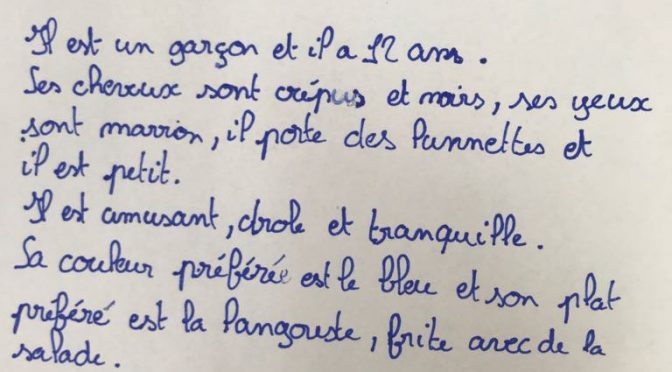 Il est un garçon et il a 12 ans.
Ses cheveux sont crépus et noirs, ses yeux
sont marrion, il porte des lunnettes et
il est petit.
Il est amusant, drole et tranquille.
Sa couleur préférée est le bleu et son plat
préféré est la langouste, frite avec de la
salade.